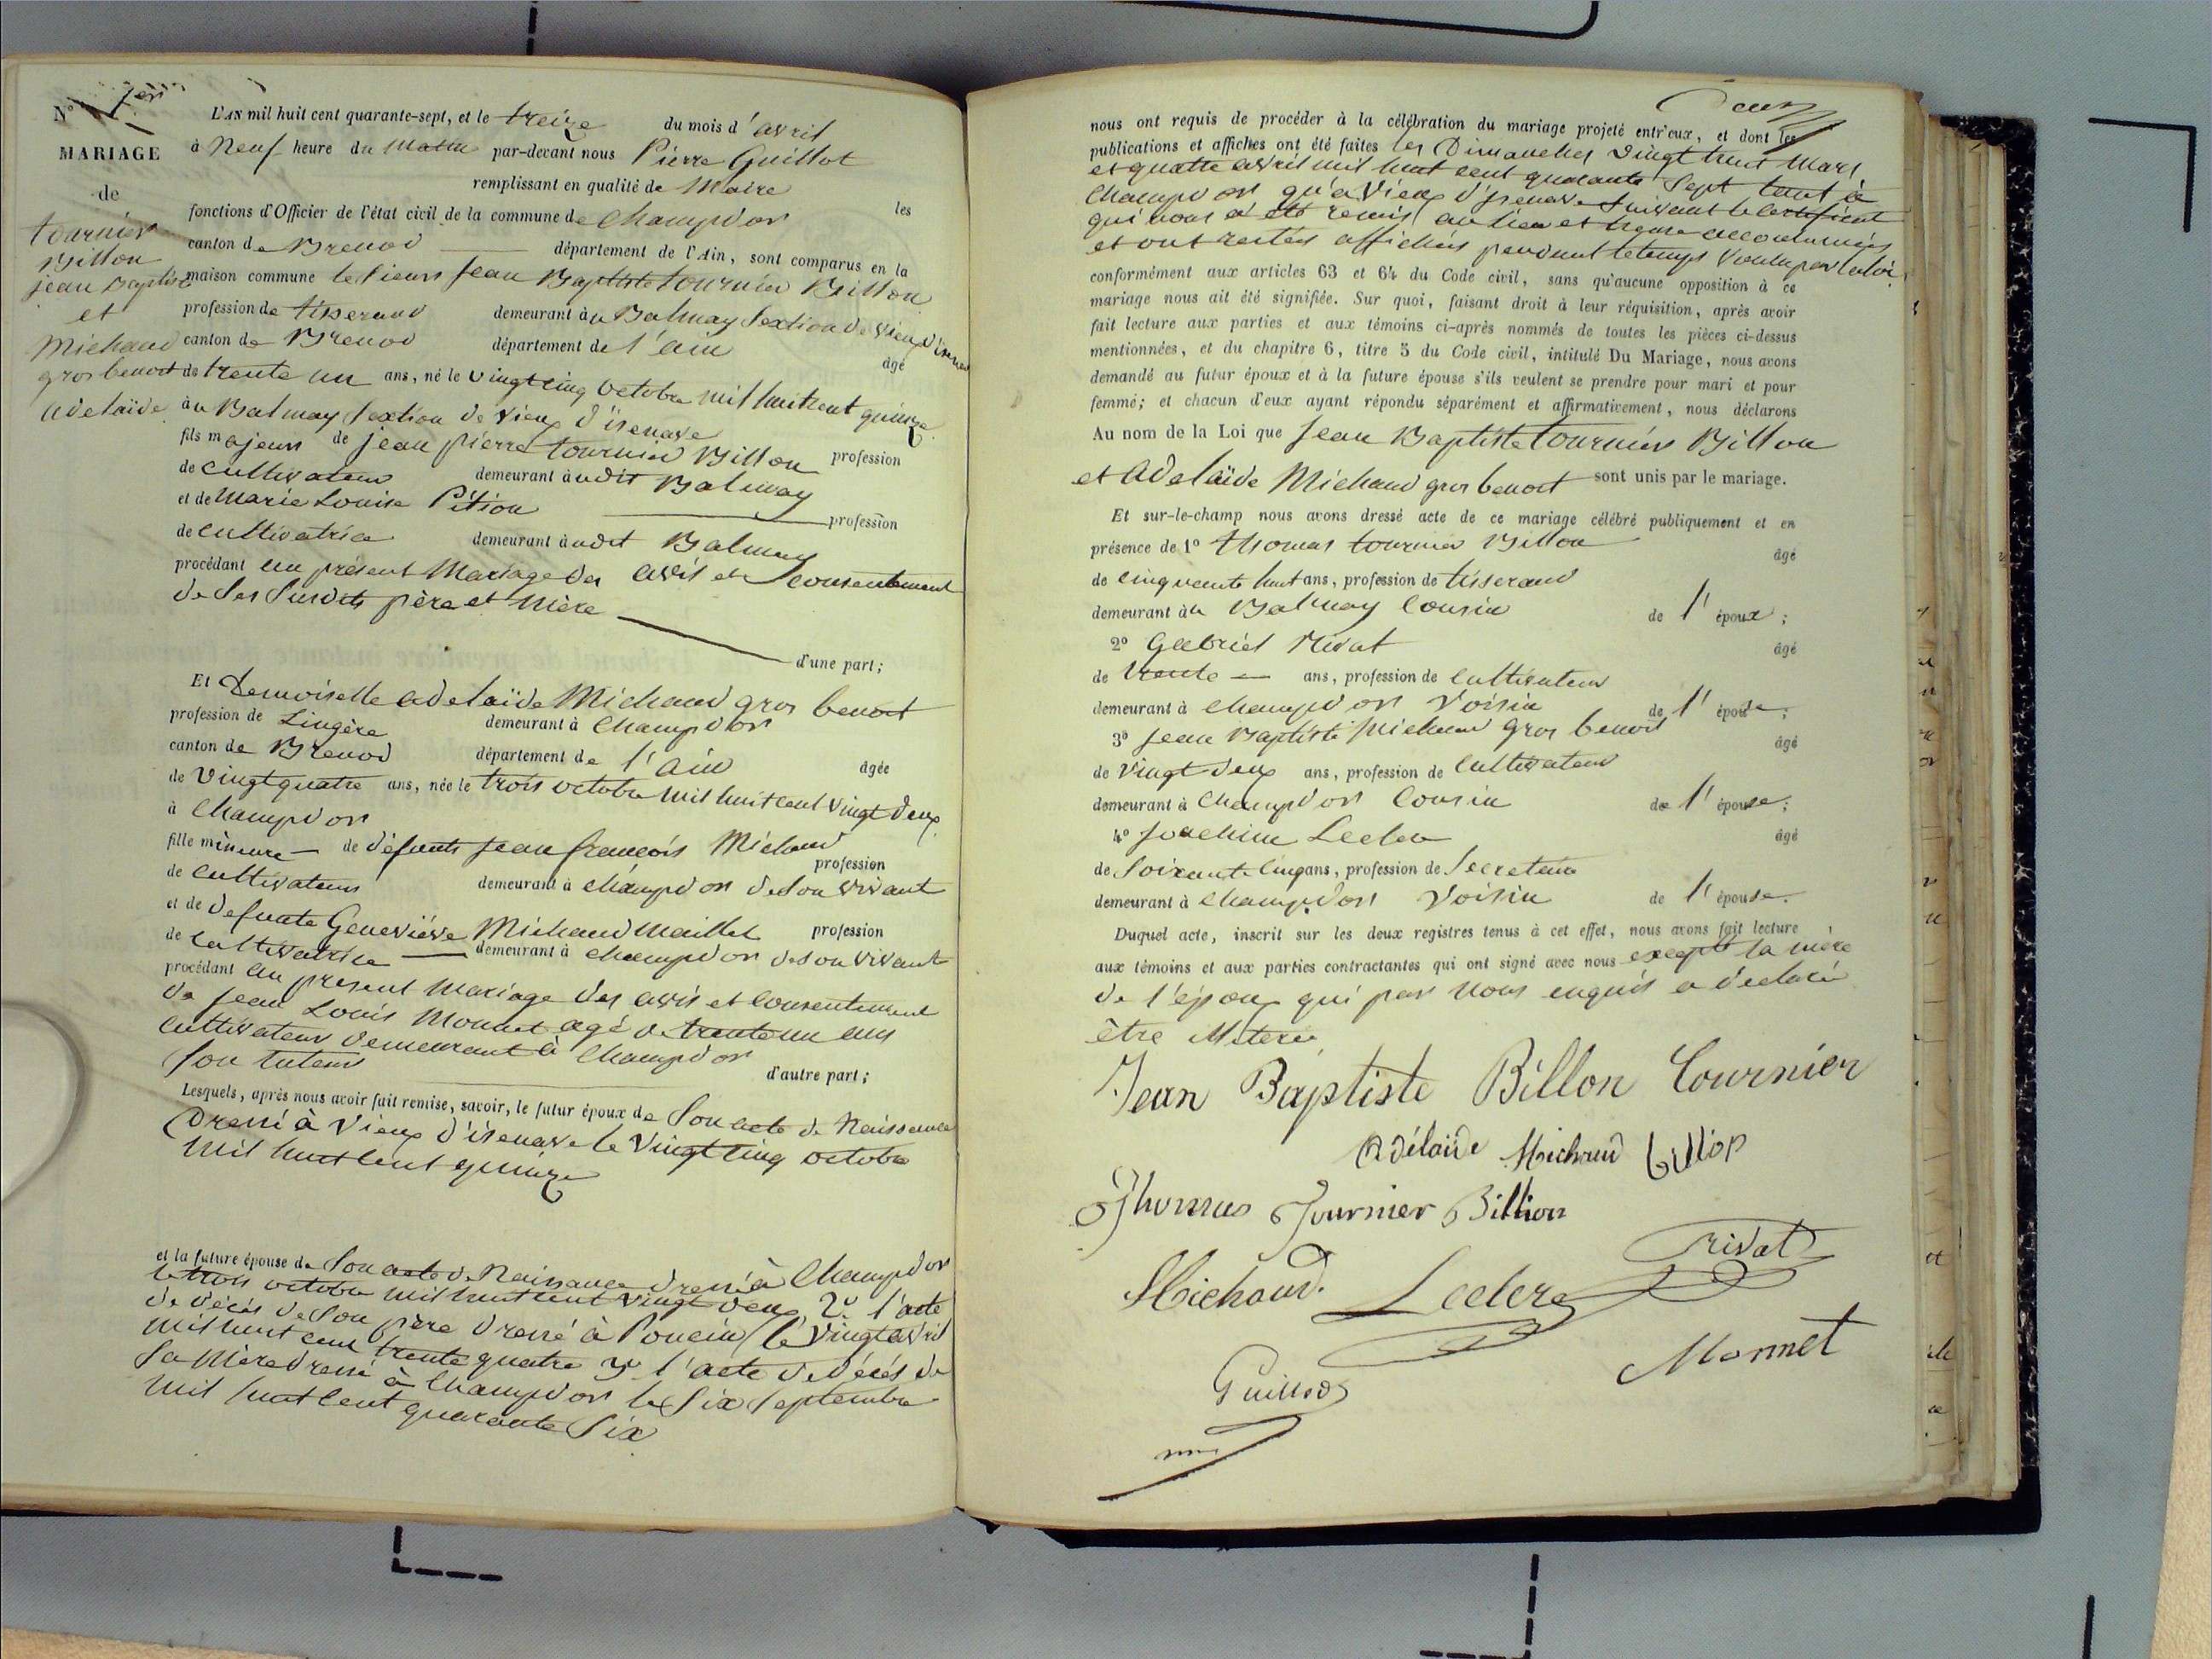 N° 1er
MARIAGE
de
tournier
Billon
jean Baptiste
et
Michaud
gros benoit
adelaïde
L'AN mil huit cent quarante-sept, et le treize du mois d'avril
à Neuf heure du Matin par-devant nous Pierre Guillot
remplissant en qualité de Maire les
fonctions d'Officier de l'état civil de la commune de Champdor
canton de Brenod département de l'Ain, sont comparus en la
maison commune le Sieurs Jean Baptiste tournier Billon
profession de tisserand demeurant àu Balmay Sextion de vieux d'isenave
canton de Brenod département de l'ain âgé
de trente un ans, né le vingt cinq octobre mil huit cent quinze
àu Balmay Sextion de vieux d'isenave
fils majeur de jean pierre tournier Billon profession
de cultivateur demeurant àudit Balmay
et de Marie Louise Pition profession
de cultivatrice demeurant àudit Balmay
procédant au présent Mariage des avis et consentement
de Ses Susdits père et Mère
d'une part;
Et Demoiselle adelaïde Michaud gros benoit
profession de Lingère demeurant à Champdor
canton de Brenod département de l'ain âgée
de vingt quatre ans, née le trois octobre mil huit cent vingt deux
à Champdor
fille mineure de défunts Jean françois Michaud profession
de cultivateur demeurant à Champdor de Son vivant
et de defunte Geneviève Michaud Maillet profession
de cultivatrice demeurant à Champdor de son vivant
procédant au présent mariage des avis et consentement
de Jean Louis Monnet agé de trente un ans
cultivateur demeurant à Champdor
Son tuteur d'autre part;
Lesquels, après nous avoir fait remise, savoir, le futur époux de Son acte de Naissance
Dressé à Vieux d'isenave le Vingt cinq octobre
Mil huit cent quinze
et la future épouse de Son acte de Naissance dressé à Champdor
le trois octobre mil huit cent vingt deux 2° l'acte
de décès de Son père Dressé à Poncin le vingt avril
mil huit cent trente quatre 3° l'acte de décès de
Sa Mère dressé à Champdor le Six Septembre
mil huit cent quarante Six
Deux
nous ont requis de procéder à la célébration du mariage projeté entr'eux, et dont les
publications et affiches ont été faites les Dimanches vingt huit Mars
et quatre avril mil huit cent quarante Sept tant à
Champdor qu'à Vieux d'isenave Suivant le Certificat
qui nous a été remis au lieu et heure accoutumés
et ont restés affichés pendant le temps voulu par la loi
conformément aux articles 63 et 64 du Code civil, sans qu'aucune opposition à ce
mariage nous ait été signifiée. Sur quoi, faisant droit à leur réquisition, après avoir
fait lecture aux parties et aux témoins ci-après nommés de toutes les pièces ci-dessus
mentionnées, et du chapitre 6, titre 5 du Code civil, intitulé Du Mariage, nous avons
demandé au futur époux et à la future épouse s'ils veulent se prendre pour mari et pour
femme; et chacun d'eux ayant répondu séparément et affirmativement, nous déclarons
Au nom de la Loi que Jean Baptiste tournier Billon
et adelaïde Michaud gros benoit sont unis par le mariage.
Et sur-le-champ nous avons dressé acte de ce mariage célébré publiquement et en
présence de 1° thomas tournier Billon âgé
de cinquante huit ans, profession de tisserand
demeurant àu Balmay Cousin de l'époux;
2° Gabriel Rivat âgé
de trente ans, profession de cultivateur
demeurant à Champdor Voisin de l'épouse;
3° Jean Baptiste Michaud gros benoit âgé
de Vingt deux ans, profession de cultivateur
demeurant à Champdor Cousin de l'épouse;
4° Joachim Leclerc âgé
de Soixante cinq ans, profession de Secretaire
demeurant à Champdor Voisin de l'épouse.
Duquel acte, inscrit sur les deux registres tenus à cet effet, nous avons fait lecture
aux témoins et aux parties contractantes qui ont signé avec nous excepté la mère
de l'époux qui par nous enquis a déclaré
être
Jean Baptiste Billon Tournier
Adélaïde Michaud
Thomas Tournier Billion
Rivat
Michaud. Leclerc
Monnet
Guillot